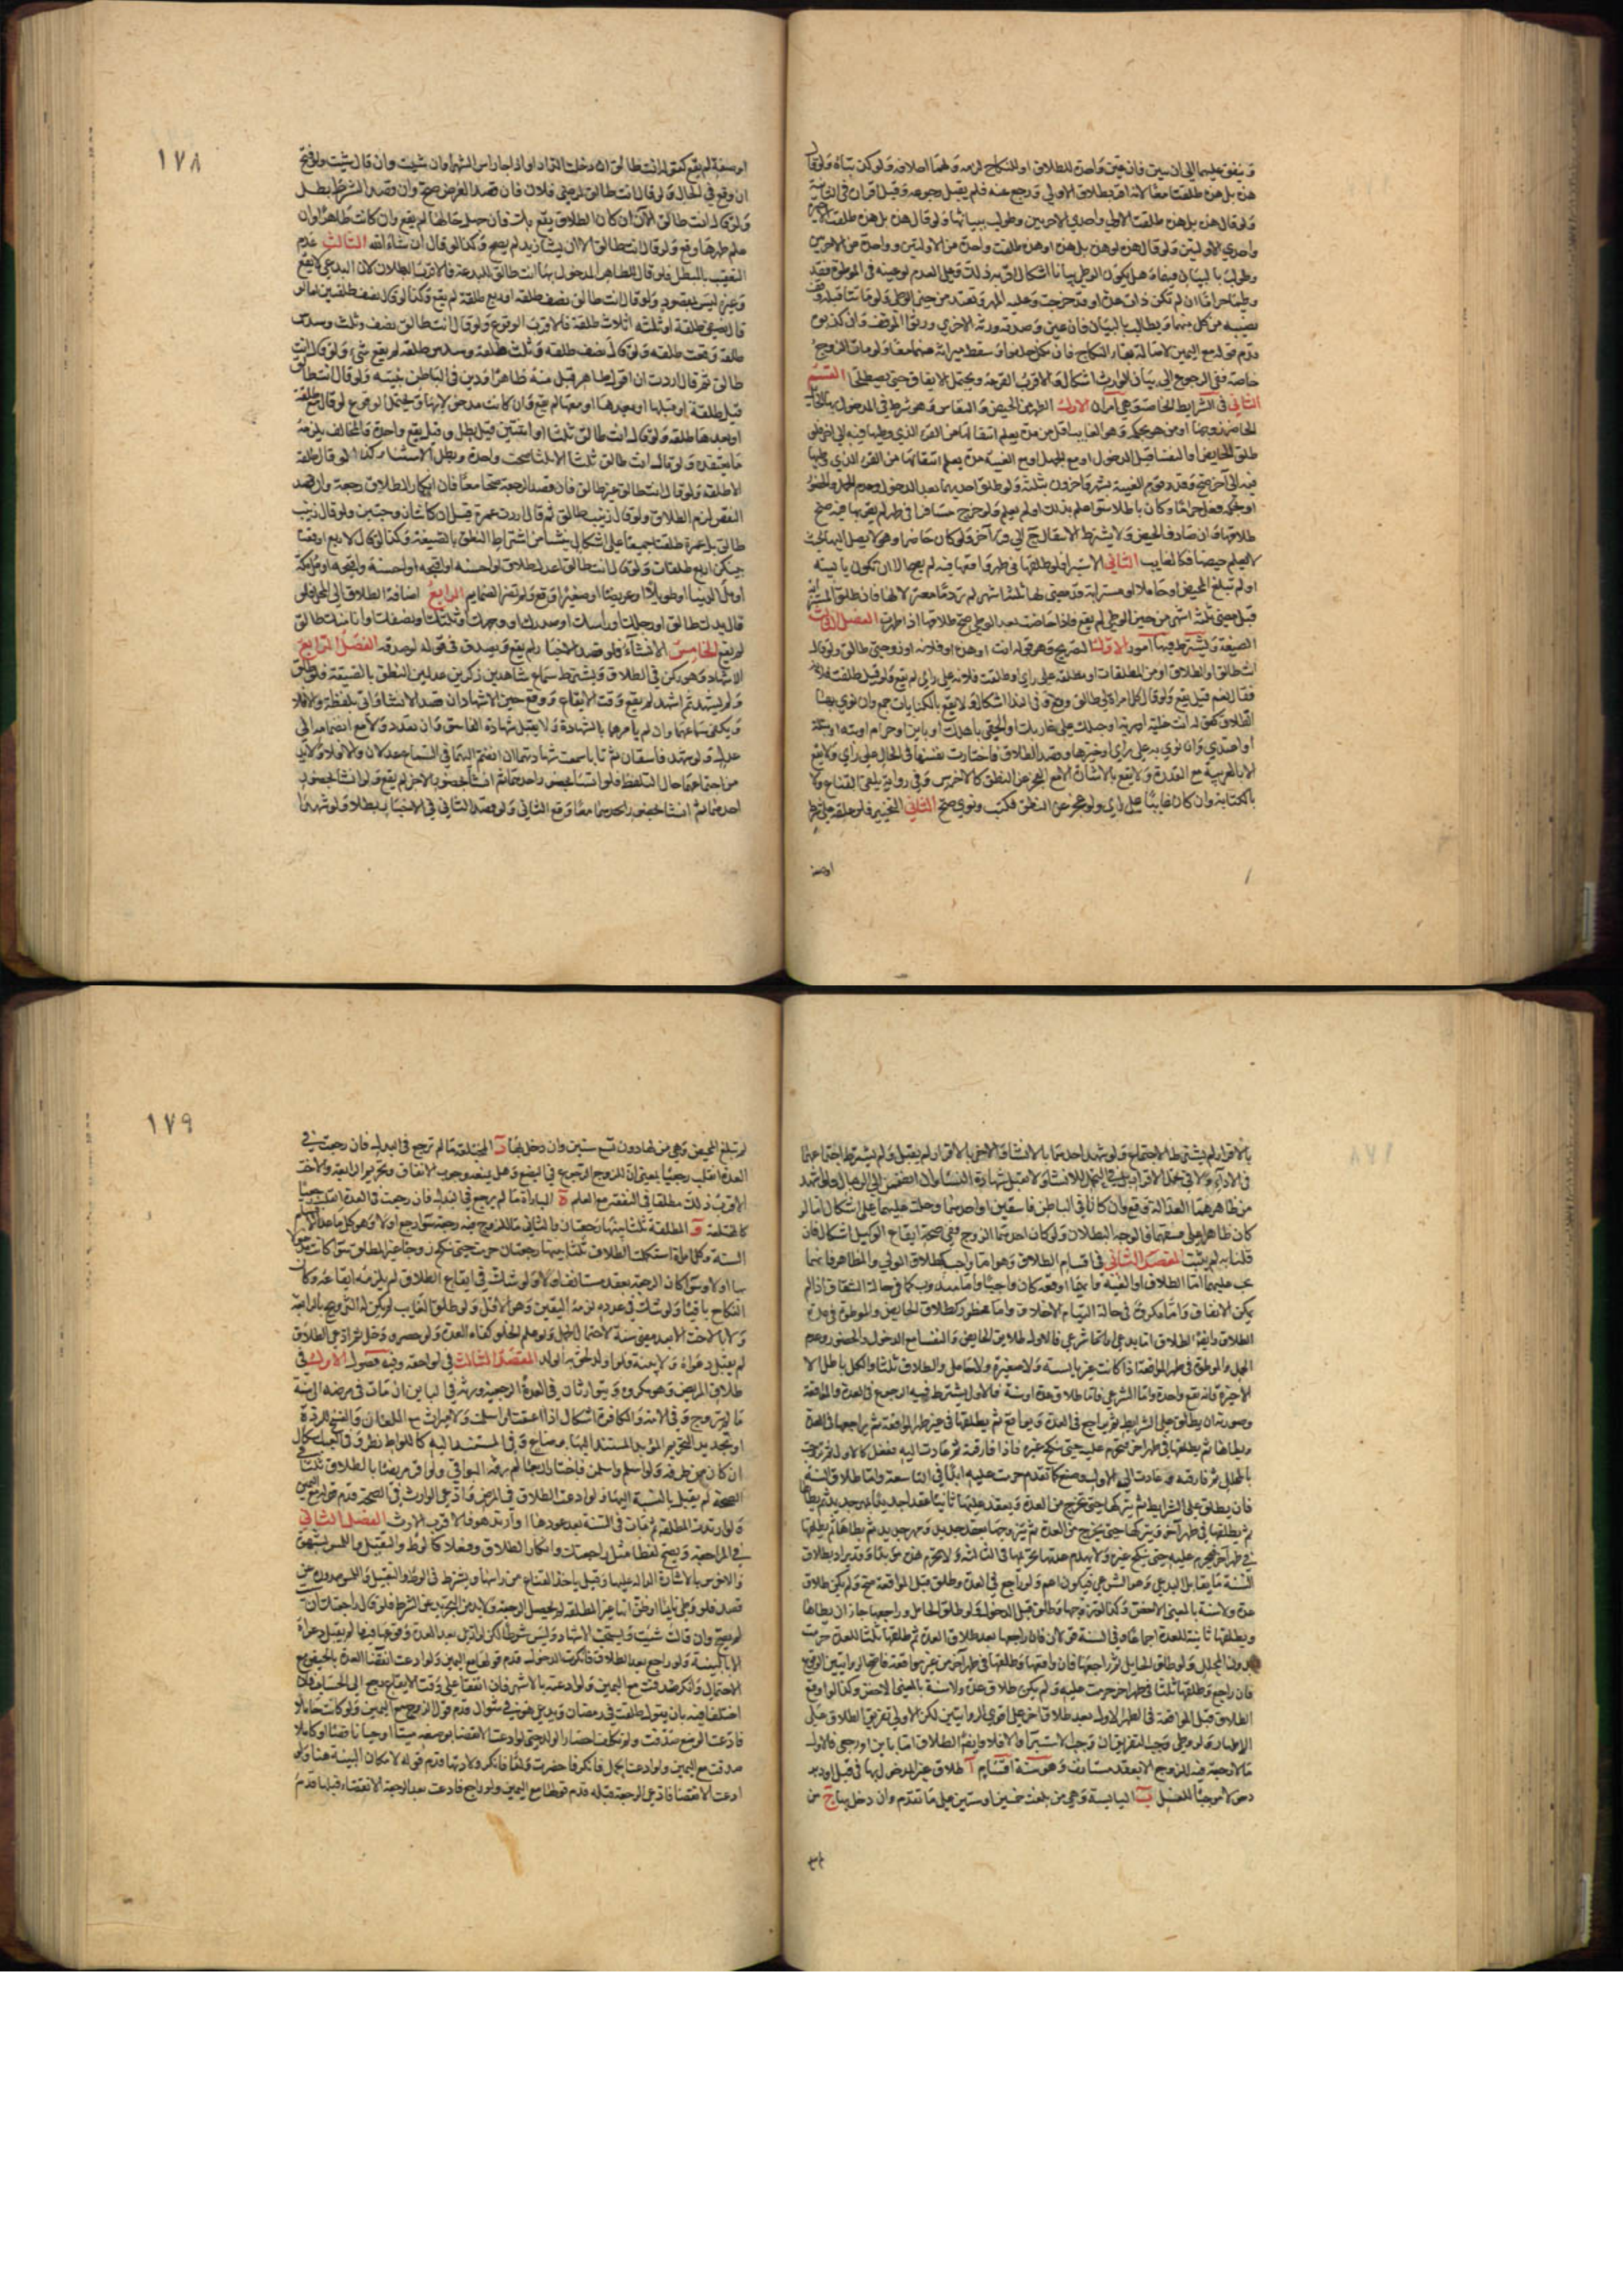 وينفق عليهما الى ان يبين فان عين واحدة للطلاق او للنكاح لزمه
هذه بل هذه طلقتا معا لانه اقر بطلاق الاولى ورجع عنه فلم يقبل رجوعه وقبل اقراره في الثانية
ولو قال هذه بل هذه طلقت الاولى واحدى الاخريين وطولب ببيانها ولو قال هذه بل هذه طلقت
واحدى الاوليين ولو قال هذه او هذه بل هذه او هذه طلقت واحدة من الاوليين وواحدة من الاخريين
وطولب بالبيان فيهما وهل يكون الوطي بيانا اشكال اقربه ذلك وعلى العدم لو عينه في الموطوءة فقد
وطئها حراما ان لم تكن ذات عدة او قد خرجت وعليه المهر وتعتد من حين الوطي ولو ماتتا قبله وقف
نصيبه من كل منهما ويطالب بالبيان فان عين وصدقه ورثة الاخرى ورثوا الموقوف وان كذبوه
قدم قوله مع اليمين لاصالة بقاء النكاح فان نكل حلفوا وسقط ميراثه عنهما معا ولو مات الزوج
خاصة ففي الرجوع الى بيان الوارث اشكال والاقرب القرعة ويحتمل الايقاف حتى يصطلحوا القسم
الثاني في الشرايط الخاصة وهي امران الاول الطهر من الحيض والنفاس وهو شرط في المدخول بها الحايل
الحاضر زوجها او من هو بحكمه وهو الغايب اقل من مدة يعلم انتقالها من القرء الذي وطئها فيه الى اخر فلو
طلق الحايض او النفساء قبل الدخول او مع الحمل او مع الغيبة مدة يعلم انتقالها من القرء الذي وطئها
فيه الى آخر صح وقدر قوم الغيبة بشهر واخرون بثلثة ولو طلق احديهما بعد الدخول وعدم الحمل والحضور
او حكمه فعل حراما وكان باطلا سواء علم بذلك او لم يعلم ولو خرج مسافرا في طهر لم يقربها فيه صح
طلاقها وان صادف الحيض ولا يشترط الانتقال ح الى قرء آخر ولو كان حاضرا وهو لا يصل اليها بحيث
لا يعلم حيضها فكالغايب الثاني الاستبراء فلو طلقها في طهر واقعها فيه لم يصح الا ان تكون يائسة
او لم تبلغ المحيض او حاملا او مسترابة قد مضى لها ثلثة اشهر لم تر دما معتزلا لها فان طلق المسترابة
قبل مضي ثلثة اشهر من حين الوطي لم يقع واذا حاضت بعد الوطي صح طلاقها اذا طهرت الفصل الثالث
الصيغة ويشترط فيها امور الاول التصريح وهو قوله انت او هذه او فلانة او زوجتي طالق ولو قال
انت طالق او الطلاق او من المطلقات او مطلقة على راي او طلقت فلانة على راي لم يقع ولو قيل طلقت فلانة
فقال نعم قيل يقع ولو قال كل امراة لي طالق وقع في اشكال ولا يقع بالكنايات جمع وان نوى بها
الطلاق كقوله انت خلية او برية او حبلك على غاربك او الحقي باهلك او باين او حرام او بتة او بتلة
او اعتدي وان نوى به على راي او خيرها وقصد الطلاق فاختارت نفسها في الحال على راي ولا يقع
الا بالعربية مع القدرة ولا يقع بالاشارة الا مع العجز عن النطق كالاخرس وفي رواية يلقى القناع ولا
بالكتابة وان كان غايبا على راي ولو عجز عن النطق فكتب ونوى صح الثاني التنجيز فلو علقه على شرط
او صفة
١٧٨
او صفة لم يقع كقوله انت طالق ان دخلت الدار او اذا جاء راس الشهر او ان شئت وان قال شئت ولو فتح
ان وقع في الحال ولو قال انت طالق لرضى فلان فان قصد الغرض صح وان قصد الشرط بطل
ولو قال انت طالق الآن ان كان الطلاق يقع بك فان جهل حالها لم يقع وان كانت طاهرا وان
علم طهرها وقع ولو قال انت طالق الا ان يشاء زيد لم يصح وكذا لو قال ان شاء الله الثالث عدم
التعقيب بالمبطل فلو قال للطاهر المدخول بها انت طالق للبدعة فالاقرب البطلان لان البدعي لا يقع
وغيره ليس بمقصود ولو قال انت طالق نصف طلقة او ربع طلقة لم يقع وكذا لو قال نصف طلقتين اما لو
قال نصفي طلقة او ثلثة اثلاث طلقة فالاقرب الوقوع ولو قال انت طالق نصف وثلث وسدس
طلقة وقعت طلقة ولو قال نصف طلقة وثلث طلقة وسدس طلقة لم يقع شيء ولو قال انت
طالق ثم قال اردت ان اقول طاهر قبل منه ظاهرا ودين في الباطن بنيته ولو قال انت طالق
قبل طلقة او قبلها او بعدها او معها لم يقع وان كانت مدخولا بها ويحتمل الوقوع لو قال مع طلقة
او بعدها طلقة ولو قال انت طالق ثلثا او اثنتين قيل يبطل وقيل يقع واحدة والمخالف يلزمه
ما يعتقده ولو قال انت طالق ثلثا الا ثلثا صحت واحدة وبطل الاستثناء وكذا لو قال طلقة
الا طلقة ولو قال انت طالق غير طالق فان قصد الرجعة صحا معا فان انكار الطلاق رجعة وان قصد
النقض لزم الطلاق ولو قال زينب طالق ثم قال اردت عمرة قبل ان كانتا زوجتين ولو قال زينب
طالق بل عمرة طلقتا جميعا على اشكال ينشأ من اشتراط النطق بالصيغة وكذا لو قال لاربع اوقعت
بينكن اربع طلقات ولو قال انت طالق اعدل طلاق او احسنه او اقبحه او احسنه واقبحه او ملأ مكة
او ملأ الدنيا او طويلا او عريضا او صغيرا وقع ولم تضر الضمايم الرابع اضافة الطلاق الى المحل فلو
قال يدك طالق او رجلك او راسك او صدرك او وجهك او ثلثك او نصفك او انا منك طالق
لم يقع الخامس الانشاء فلو قصد الاخبار لم يقع ويصدق في قوله لو صدقه الفصل الرابع
الاشهاد وهو ركن في الطلاق ويشترط سماع شاهدين ذكرين عدلين النطق بالصيغة فلو طلق
ولم يشهد ثم اشهد لم يقع وقت الايقاع ووقع حين الاشهاد ان قصد الانشاء واتى بلفظه والا فلا
ويكفي سماعهما وان لم يامرهما بالشهادة ولا يقبل شهادة الفاسق وان تعدد ولا مع انضمامه الى
عدل ولو شهد فاسقان ثم تابا سمعت شهادتهما ان انضم اليهما في السماع عدلان والا فلا ولا بد
من اجتماعهما حال التلفظ فلو انشأ بحضور احدهما ثم انشأ بحضور الاخر لم يقع ولو انشأ بحضور
احدهما ثم انشأ بحضور احدهما معا وقع الثاني ولو قصد الثاني في الاخبار بطلا ولو شهدا
بالاقرار لم يشترط الاجتماع ولو شهد احدهما بالانشاء والاخر بالاقرار لم يقبل ولم يشترط اجتماعهما
في الاداء ولا في تحمل الاقرار بل في التحمل للانشاء ولا تقبل شهادة النساء وان انضممن الى الرجال ولو اشهد
من ظاهرهما العدالة وقع وان كانا في الباطن فاسقين او احدهما وحلت عليهما على اشكال اما لو
كان ظاهرا على فسقهما فالوجه البطلان ولو كان احدهما الزوج ففي صحة ايقاع الوكيل اشكال فان
قلنا به لم يثبت المقصد الثاني في اقسام الطلاق وهو اما واجب كطلاق المولي والمظاهر فانهما
يجب عليهما اما الطلاق او الفئة وايهما اوقعه كان واجبا واما مندوب كما في حالة الشقاق اذا لم
يكن الاتفاق واما مكروه في حالة التيام الاخلاق واما محظور كطلاق الحايض والموطوءة في
الطلاق وايضا الطلاق اما بدعي واما شرعي فالاول طلاق الحايض والنفساء مع الدخول والحضور وعدم
الحبل والموطوءة في طهر المواقعة اذا كانت غير يائسة ولا صغيرة ولا حامل والطلاق ثلثا والكل باطل الا
الاخيرة فانه تقع واحدة واما الشرعي فاما طلاق عدة او سنة فالاول يشترط فيه الرجوع في العدة والمواقعة
وصورته ان يطلق على الشرايط ثم يراجع في العدة ويواقع ثم يطلقها في غير طهر المواقعة ثم يراجعها في العدة
ويطاها ثم يطلقها في طهر اخر فتحرم عليه حتى تنكح غيره فاذا فارقته ثم عادت اليه ففعل كالاول
بالمحلل ثم فارقته وعادت الى الاول وصنع كما تقدم حرمت عليه ابدا في التاسعة واما طلاق السنة
فان يطلق على الشرايط ثم يتركها حتى تخرج من العدة ويعقد عليها ثانيا عقدا جديدا بمهر جديد ثم يطاها
ثم يطلقها في طهر آخر ويتركها حتى تخرج من العدة ثم يتزوجها بعقد جديد ومهر جديد ثم يطاها ثم يطلقها
في طهر آخر فتحرم عليه حتى تنكح غيره ولا يهدم عدتها تحريمها في الثالثة ولا تحرم هذه مؤبدا وقد يراد بطلاق
السنة ما يقابل البدعي وهو الشرعي فيكون اعم ولو راجع في العدة وطلق قبل المواقعة صح ولم يكن طلاق
عدة ولا سنة بالمعنى الاخص وكذا لو تزوجها وطلق قبل الدخول ولو طلق الحامل وراجعها جاز ان يطاها
ويطلقها ثانية للعدة اجماعا وفي السنة قولان فان راجعها بعد طلاق العدة ثم طلقها ثلثا للعدة حرمت
بدون المحلل ولو طلق الحايل ثم راجعها فان واقعها وطلقها في طهر آخر من غير مواقعة فاصح الروايتين الوقوع
فان راجع وطلقها ثلثا في طهر اخر حرمت عليه ولم يكن طلاق عدة ولا سنة بالمعنى الاخص وكذا لو اوقع
الطلاق قبل المواقعة في الطهر الاول بعد طلاق آخر على اقوى الروايتين لكن الاولى تفريق الطلاق على
الاطهار ولو وطي وجب التفريق ان وجب الاستبراء والا فلا وايضا الطلاق اما باين او رجعي فالاول
ما لا رجعة فيه للزوج الا بعقد مستانف وهو ستة اقسام آ طلاق غير المدخول بها في قبل او دبر
دخولا موجبا للغسل ب اليايسة وهي من بلغت خمسين او ستين على ما تقدم وان دخل بها ج من
لم
١٧٩
لم تبلغ المحيض وهي من لها دون تسع سنين وان دخل بها د المختلعة ما لم ترجع في البذل فان رجعت في
العدة انقلب رجعيا بمعنى ان للزوج الرجوع في البضع وهل يتبعه وجوب الانفاق وتحريم الرابعة والاخت
الاقرب ذلك مطلقا في النفقة مع العلم ه المباراة ما لم يرجع في البذل فان رجعت في العدة انقلب رجعيا
كالمختلعة و المطلقة ثلثا بينها رجعتان والثاني ما للزوج فيه رجعة سواء رجع او لا وهو كل ما عدا الاقسام
الستة وكل امراة استكملت الطلاق ثلثا بينها رجعتان حرمت حتى تنكح زوجا غير المطلق سواء كانت مدخولا
بها او لا وسواء كان الرجعة بعقد مستانف او لا ولو شك في ايقاع الطلاق لم يلزمه ايقاعه وكان
النكاح باقيا ولو شك في عدده لزمه اليقين وهو الاقل ولو طلق الغايب لم يكن له التزويج بالرابعة
ولا بالاخت الا بعد مضي سنة لاحتمال الحمل ولو علم الخلو كفاه العدة ولو حضر ودخل ثم ادعى الطلاق
لم يقبل دعواه ولا بينة فلو اولد لحق به الولد المقصد الثالث في لواحقه وفيه فصول الاول في
طلاق المريض وهو مكروه ويتوارثان في العدة الرجعية وترثه في الباين ان مات في مرضه الى سنة
ما لم تتزوج وفي الامة والكافرة اشكال اذا اعتقت او اسلمت ولا ميراث مع اللعان والفسخ للردة
او تجديد التحريم المؤبد المستند اليها برضاع وفي المستند اليه كاللواط نظر وفي
ان كان من طرفه ولو اسلم واسلمن فاختار اربعا لم يرثه البواقي ولو اقر مريضا بالطلاق ثلثا في
الصحة لم يقبل بالنسبة اليها ولو ادعت الطلاق في المرض وادعى الوارث في الصحة قدم قوله مع اليمين
ولو ارتدت المطلقة ثم مات في السنة بعد عودها او ارتد هو فالاقرب الارث الفصل الثاني
في المراجعة ويصح لفظا مثل راجعتك وانكار الطلاق وفعلا كالوطء والتقبيل واللمس بشهوة
والاخرس بالاشارة الدالة عليها وقيل ياخذ القناع من راسها ويشترط في الوطء والتقبيل واللمس صدوره عن
قصد فلو وطي نايما او ظن انها غير المطلقة لم يحصل الرجعة ولا بد من التجريد عن الشرط فلو قال راجعتك ان شئت
لم يصح وان قالت شئت ويستحب الاشهاد وليس شرطا لكن لو ادعى بعد العدة وقوعها فيها لم يقبل دعواه
الا بالبينة ولو راجع بعد الطلاق فانكرت الدخول قدم قولها مع اليمين ولو ادعت انقضاء العدة بالحيض مع
الاحتمال وانكر صدقت مع اليمين ولو ادعته بالاشهر فان اتفقا على وقت الايقاع رجع الى الحساب وان
اختلفا فيه بان يقول طلقت في رمضان وتدعي هي في شوال قدم قول الزوج مع اليمين ولو كانت حاملا
فادعت الوضع صدقت ولم تكلف احضار الولد حتى لو ادعت الانقضاء بوضعه ميتا او حيا ناقصا او كاملا
صدقت مع اليمين ولو ادعت الحمل فانكر فاحضرت ولدا فانكر ولادتها قدم قوله لامكان البينة هنا ولو
ادعت الانقضاء فادعى الرجعة قبله قدم قولها مع اليمين ولو راجع فادعت بعد الرجعة الانقضاء قبلها قدم